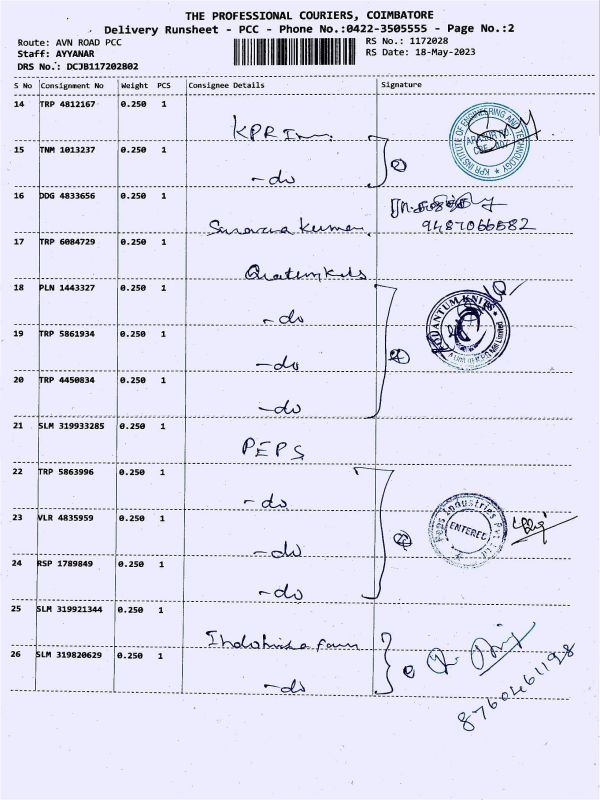 THE PROFESSIONAL COURIERS, COIMBATORE
Delivery Runsheet - PCC - Phone No.:0422-3505555 - Page No.:2
Route: AVN ROAD PCC
RS No.: 1172028
Staff: AYYANAR
RS Date: 18-May-2023
DRS No.: DCJB117202802
S No Consignment No Weight PCS Consignee Details Signature
14 TRP 4812167 0.250 1
KPR
KPR INSTITUTE OF ENGINEERING AND TECHNOLOGY
15 TNM 1013237 0.250 1
-do
16 DDG 4833656 0.250 1
Saravana Kumar
9487066582
17 TRP 6084729 0.250 1
QUANTUM KNITS
18 PLN 1443327 0.250 1
-do
19 TRP 5861934 0.250 1
-do
20 TRP 4450834 0.250 1
-do
21 SLM 319933285 0.250 1
PEPS
22 TRP 5863996 0.250 1
-do
Peps Industries Pvt Ltd
ENTERED
23 VLR 4835959 0.250 1
-do
24 RSP 1789849 0.250 1
-do
25 SLM 319921344 0.250 1
26 SLM 319820629 0.250 1
-do
8760461198